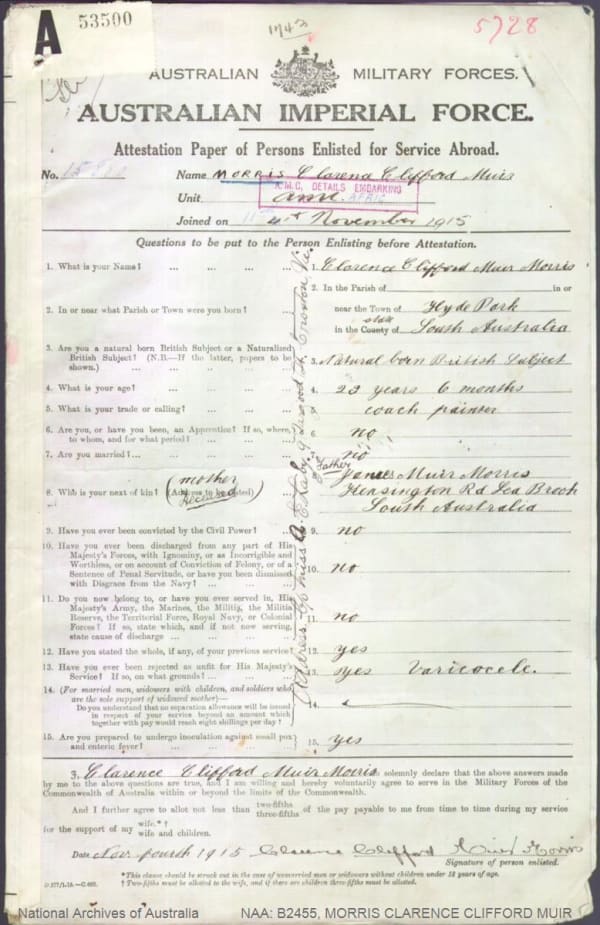 A
53500
1742
5728
AUSTRALIAN MILITARY FORCES.
AUSTRALIAN IMPERIAL FORCE.
Attestation Paper of Persons Enlisted for Service Abroad.
No.
Name MORRIS Clarence Clifford Muir
A.M.C. DETAILS EMBARKING
Unit
Joined on November 1915
Questions to be put to the Person Enlisting before Attestation.
1. What is your Name? ... ... ... 1. Clarence Clifford Muir Morris
2. In or near what Parish or Town were you born? ... 2. In the Parish of in or
near the Town of Hyde Park
state
in the County of South Australia
3. Are you a natural born British Subject or a Naturalized
British Subject? (N.B.—If the latter, papers to be
shown.) ... ... 3. Natural born British Subject
4. What is your age? ... ... 4. 23 years 6 months
5. What is your trade or calling? ... ... 5. coach painter
6. Are you, or have you been, an Apprentice? If so, where,
to whom, and for what period? ... 6. no
7. Are you married? ... ... 7. no
8. Who is your next of kin? (Address to be stated) 8. Father James Muir Morris
mother
deceased
Kensington Rd Lea Brook
South Australia
Address. C/o miss
9. Have you ever been convicted by the Civil Power? 9. no
10. Have you ever been discharged from any part of His
Majesty's Forces, with Ignominy, or as Incorrigible and
Worthless, or on account of Conviction of Felony, or of a
Sentence of Penal Servitude, or have you been dismissed
with Disgrace from the Navy? ... ... 10. no
11. Do you now belong to, or have you ever served in, His
Majesty's Army, the Marines, the Militia, the Militia
Reserve, the Territorial Force, Royal Navy, or Colonial
Forces? If so, state which, and if not now serving,
state cause of discharge ... ... 11. no
12. Have you stated the whole, if any, of your previous service? 12. yes
13. Have you ever been rejected as unfit for His Majesty's
Service? If so, on what grounds? ... 13. yes Varicocele.
14. (For married men, widowers with children, and soldiers who
are the sole support of widowed mother)—
Do you understand that no separation allowance will be issued
in respect of your service beyond an amount which
together with pay would reach eight shillings per day? 14.
15. Are you prepared to undergo inoculation against small pox
and enteric fever? 15. yes
3. Clarence Clifford Muir Morris solemnly declare that the above answers made
by me to the above questions are true, and I am willing and hereby voluntarily agree to serve in the Military Forces of the
Commonwealth of Australia within or beyond the limits of the Commonwealth.
And I further agree to allot not less than two-fifths three-fifths of the pay payable to me from time to time during my service
for the support of my wife.*† wife and children.
Date Nov fourth 1915 Clarence Clifford Muir Morris
Signature of person enlisted.
*This clause should be struck out in the case of unmarried men or widowers without children under 18 years of age.
†Two-fifths must be allotted to the wife, and if there are children three-fifths must be allotted.
National Archives of Australia NAA: B2455, MORRIS CLARENCE CLIFFORD MUIR